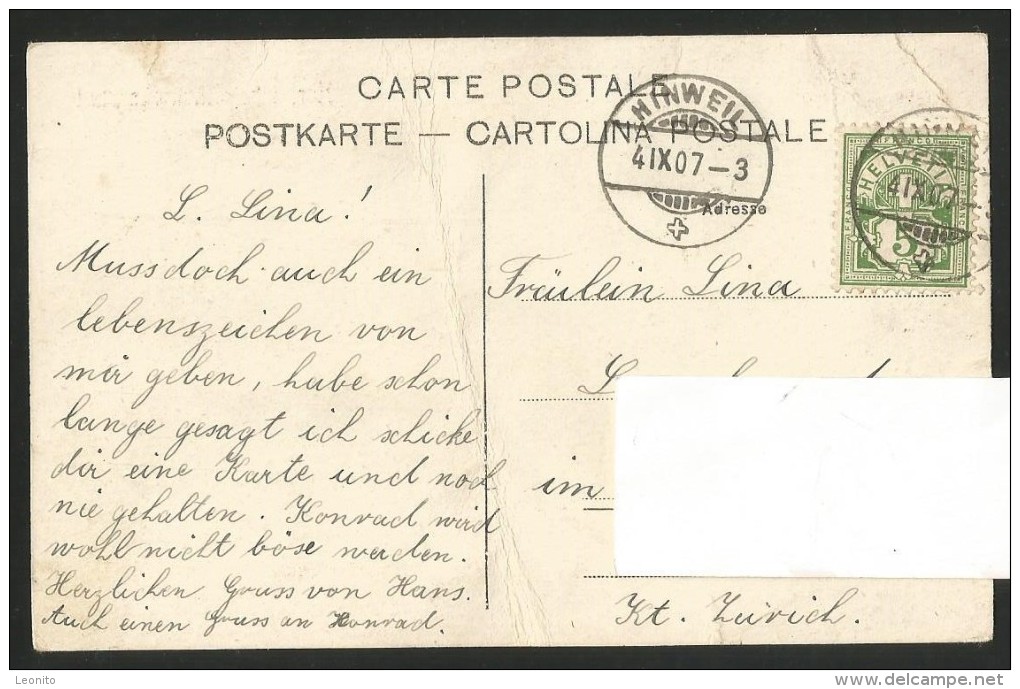 CARTE POSTALE
POSTKARTE — CARTOLINA POSTALE
HINWEIL
4 IX 07 – 3
Adresse
HELVETIA
FRANCO
4 IX 07
5
L. Lina!
Muss doch auch ein
lebenszeichen von
mir geben, habe schon
lange gesagt ich schicke
dir eine Karte und noch
nie gehalten. Konrad wird
wohl nicht böse werden.
Herzlichen Gruss von Hans.
Auch einen Gruss an Konrad.
Fräulein Lina
im
Kt. Zürich.
Leonito
delcampe.net